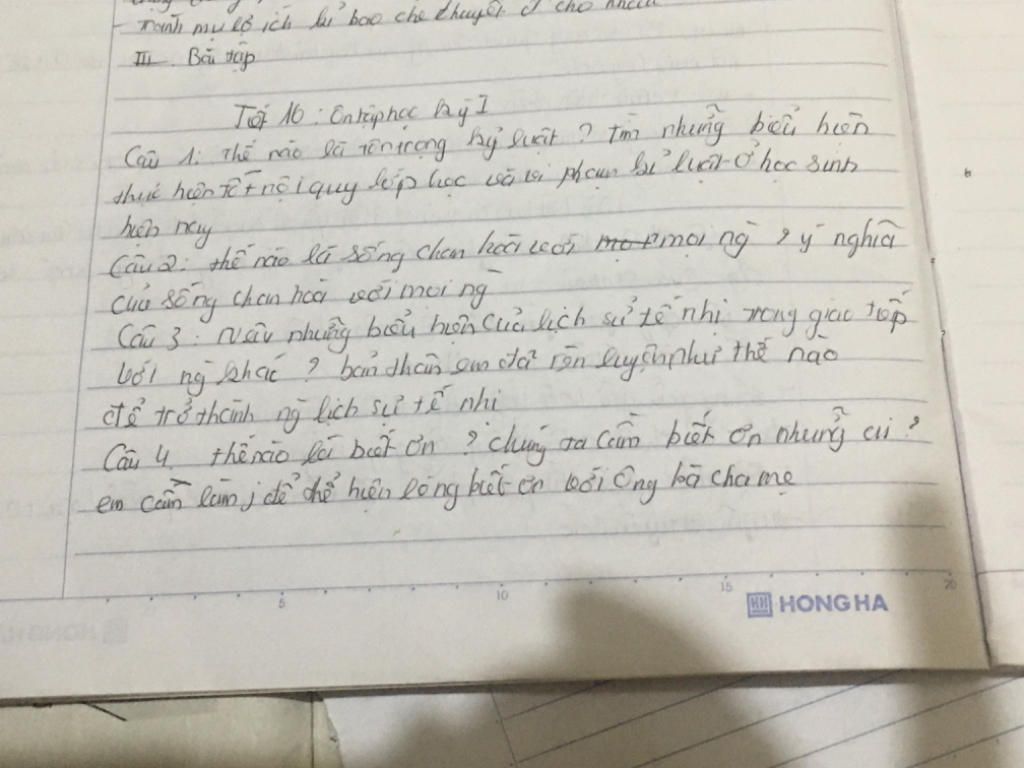 tránh mụ lợ ích bao che khuyết cho
III Bài tập
Tiết 16: Ôn tập học kỳ I
Câu 1: thế nào là tôn trọng kỷ luật? Tìm những biểu hiện
thực hiện tốt nội quy lớp học và vi phạm kỉ luật ở học sinh
hiện nay
Câu 2: thế nào là sống chan hoà với mọi ng ? ý nghĩa
của sống chan hoà với mọi ng
Câu 3: Nêu những biểu hiện của lịch sự tế nhị trong giao tiếp
với ng khác? bản thân em đã rèn luyện như thế nào
để trở thành ng lịch sự tế nhị
Câu 4. thế nào là biết ơn? chúng ta cần biết ơn những ai?
em cần làm j để thể hiện lòng biết ơn với ông bà cha mẹ
5 10 15 20
HONG HA